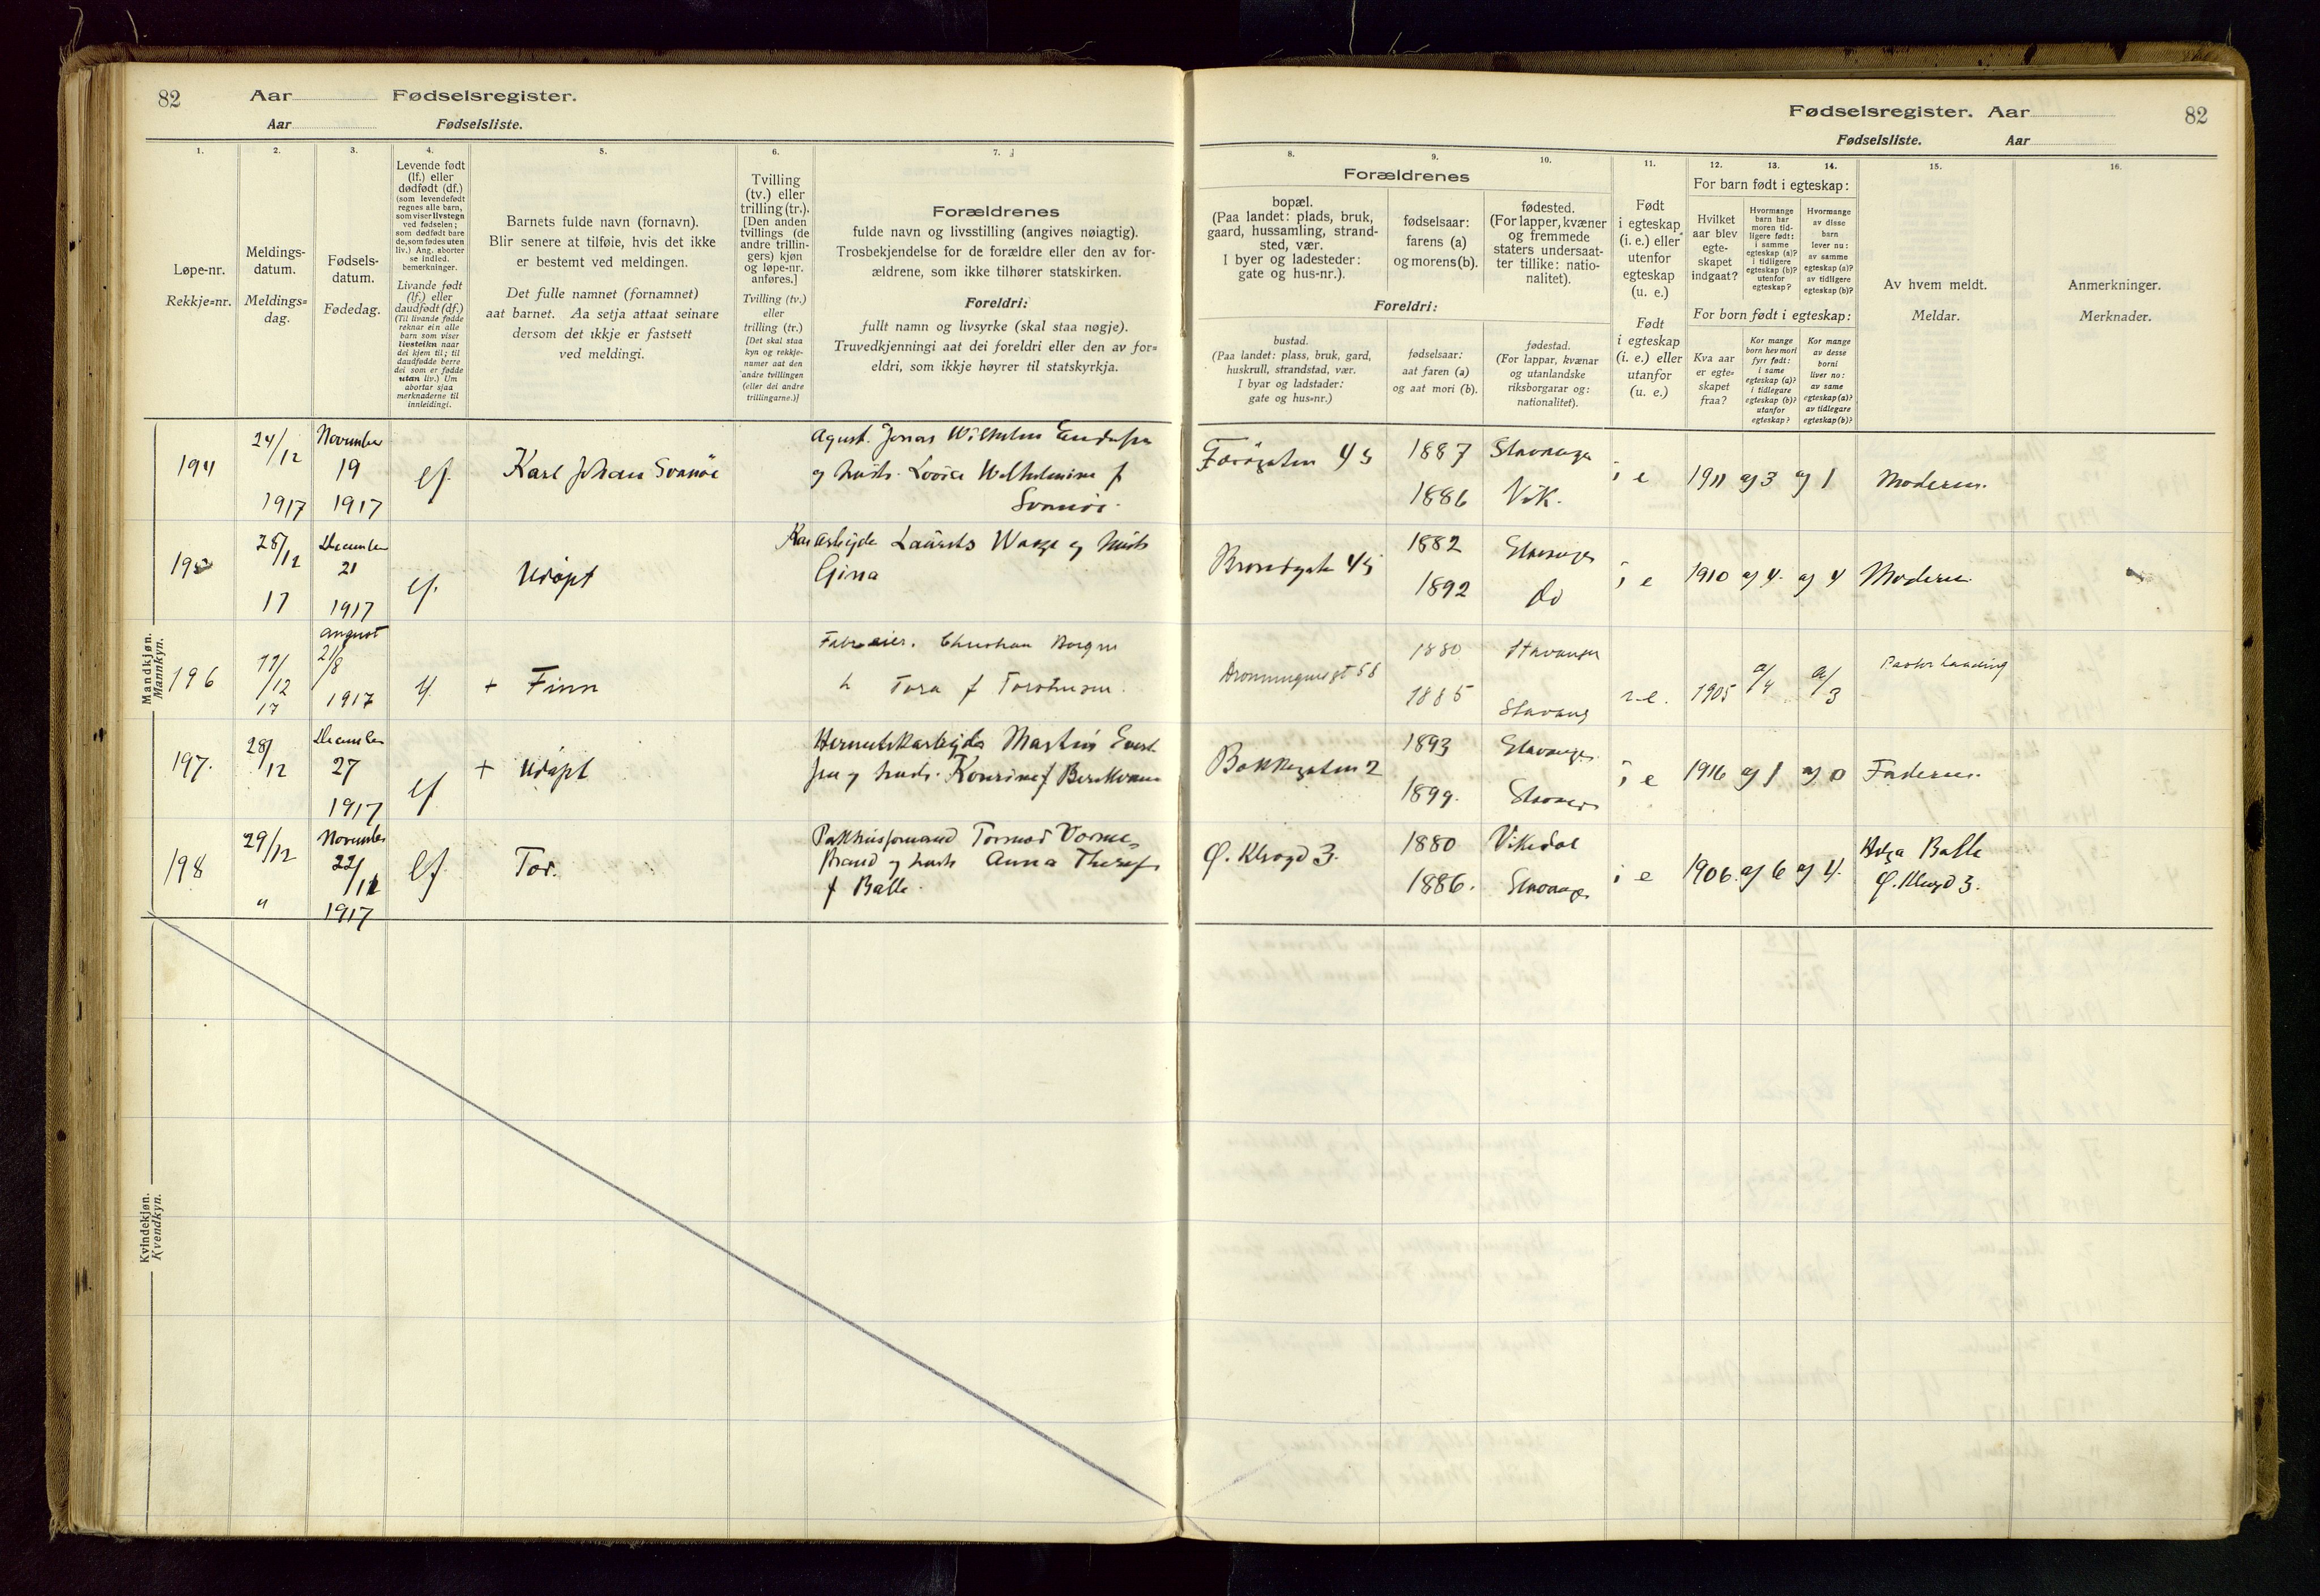 82 Aar Fødselsregister.
Aar Fødselsliste.
1. 2. 3. 4. 5. 6. 7.
Løpe-nr.
Rekkje-nr.
Meldings-
datum.
Meldings-
dag.
Fødsels-
datum.
Fødedag.
Levende født
(lf.) eller
dødfødt (df.)
(som levendefødt
regnes alle barn,
som viser livstegn
ved fødselen;
som dødfødt bare
de, som fødes uten
liv.) Ang. aborter
se indled.
bemerkninger.
Livande født
(lf.) eller
daudfødt (df.)
(Til livande fødde
reknar ein alle
barn som viser
livsteikn naar
dei kjem til; til
daudfødde berre
dei som er fødde
utan liv.) Um
abortar sjaa
merknaderne til
innleidingi.
Barnets fulde navn (fornavn).
Blir senere at tilføie, hvis det ikke
er bestemt ved meldingen.
Det fulle namnet (fornamnet)
aat barnet. Aa setja attaat seinare
dersom det ikkje er fastsett
ved meldingi.
Tvilling
(tv.) eller
trilling (tr.).
[Den anden
tvillings (de
andre trillin-
gers) kjøn
og løpe-nr.
anføres.]
Tvilling (tv.)
eller
trilling (tr.)
[Det skal staa
kyn og rekkje-
numer aat den
andre tvillingen
(eller dei andre
trillingarne.)]
Forældrenes
fulde navn og livsstilling (angives nøiagtig).
Trosbekjendelse for de forældre eller den av for-
ældrene, som ikke tilhører statskirken.
Foreldri:
fullt namn og livsyrke (skal staa nøgje).
Truvedkjenningi aat dei foreldri eller den av for-
eldri, som ikkje høyrer til statskyrkja.
Mandkjøn.
Mannkyn.
194 24/12 1917 November 19 1917 lf. Karl Johan Svanøe
Agust. Jonas Wilhelm
og hustr. Lovise Wilhelmine f
Svanøe.
28/12 17 December 21 1917 lf. Udøpt
Laurits Waage og hustr
Gina
196 11/12 17 august 21/8 1917 lf. + Finn
Christian
Tora f
197. 28/12 December 27 1917 lf + Udøpt
Hermetikkarbejder Martin
og hustr.
198 29/12 " November 22/11 1917 lf Tor.
Pakhusformand Tormod
og hustr Anna
f Balle.
Kvindekjøn.
Kvendkyn.
Fødselsregister. Aar 82
Fødselsliste. Aar
8. 9. 10. 11. 12. 13. 14. 15. 16.
Forældrenes
bopæl.
(Paa landet: plads, bruk,
gaard, hussamling, strand-
sted, vær.
I byer og ladesteder:
gate og hus-nr.).
fødselsaar:
farens (a)
og morens (b).
fødested.
(For lapper, kvæner
og fremmede
staters undersaat-
ter tillike: natio-
nalitet).
Foreldri:
bustad.
(Paa landet: plass, bruk, gard,
huskrull, strandstad, vær.
I byar og ladstader:
gate og hus-nr.)
fødselsaar:
aat faren (a)
og aat mori (b).
fødestad.
(For lappar, kvænar
og utanlandske
riksborgarar og:
nationalitet).
Født
i egteskap
(i. e.) eller
utenfor
egteskap
(u. e.)
Født
i egteskap
(i. e.) eller
utanfor
(u. e.)
For barn født i egteskap:
Hvilket
aar blev
egte-
skapet
indgaat?
Hvormange
barn har
moren tid-
ligere født:
i samme
egteskap (a)?
i tidligere
egteskap (b)?
utenfor
egteskap?
Hvormange
av disse
barn
lever nu:
av samme
egteskap (a)?
av tidligere
egteskap (b)?
For born født i egteskap:
Kva aar
er egte-
skapet
fraa?
Kor mange
born hev mori
fyrr født:
i same
egteskap (a)?
i tidlegare
egteskap (b)?
utanfor
egteskap?
Kor mange
av desse
borni
liver no:
av same
egteskap (a)?
av tidlegare
egteskap (b)?
Av hvem meldt.
Meldar.
Anmerkninger.
Merknader.
1887 Stavanger
1886 Vik. i e 1911 a) 3 a) 1 Moderen.
1882 Stavanger
1892 do i e 1910 a) 4. a) 4 Moderen.
1880 Stavanger
1885 Stavang 1905 a/4 a/3 Pastor
Bakkegaten 2 1893 Stavanger
1899. Stavanger i e 1916 a) 1 a) 0 Faderen.
1880 Vikedal
1886. Stavanger i e 1906. a) 6 a) 4. Helga Balle